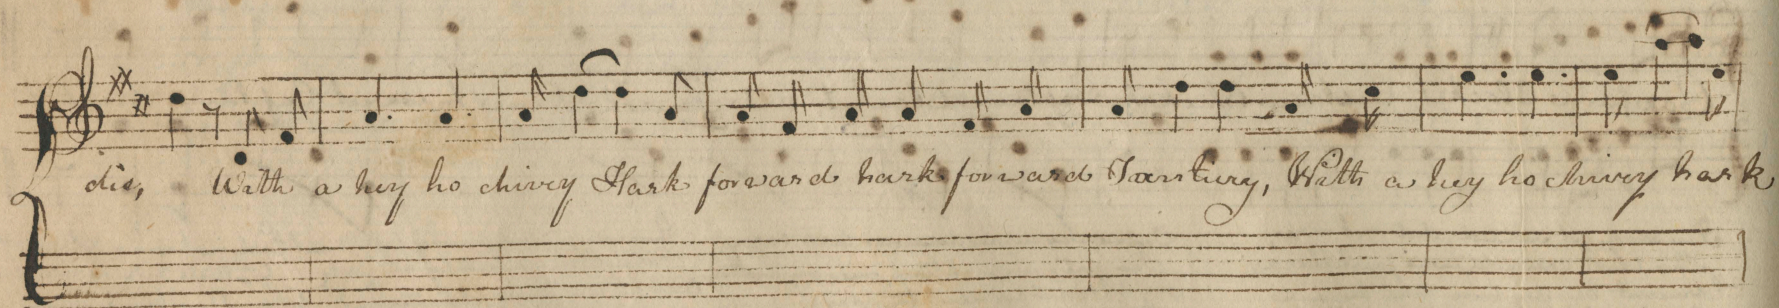 die, With a hey ho chivey Hark forward hark forward Tantivy, With a hey ho chivey hark